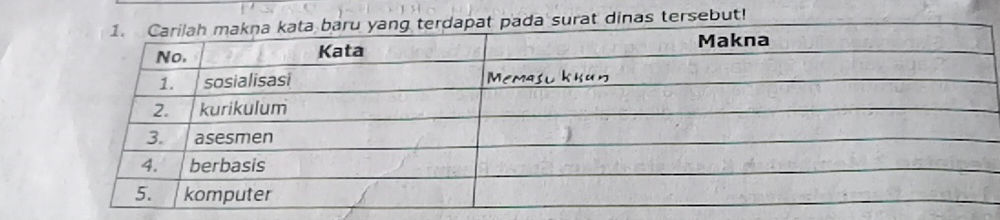 1. Carilah makna kata baru yang terdapat pada surat dinas tersebut!
No. Kata Makna
1. sosialisasi Memasukkan
2. kurikulum
3. asesmen
4. berbasis
5. komputer